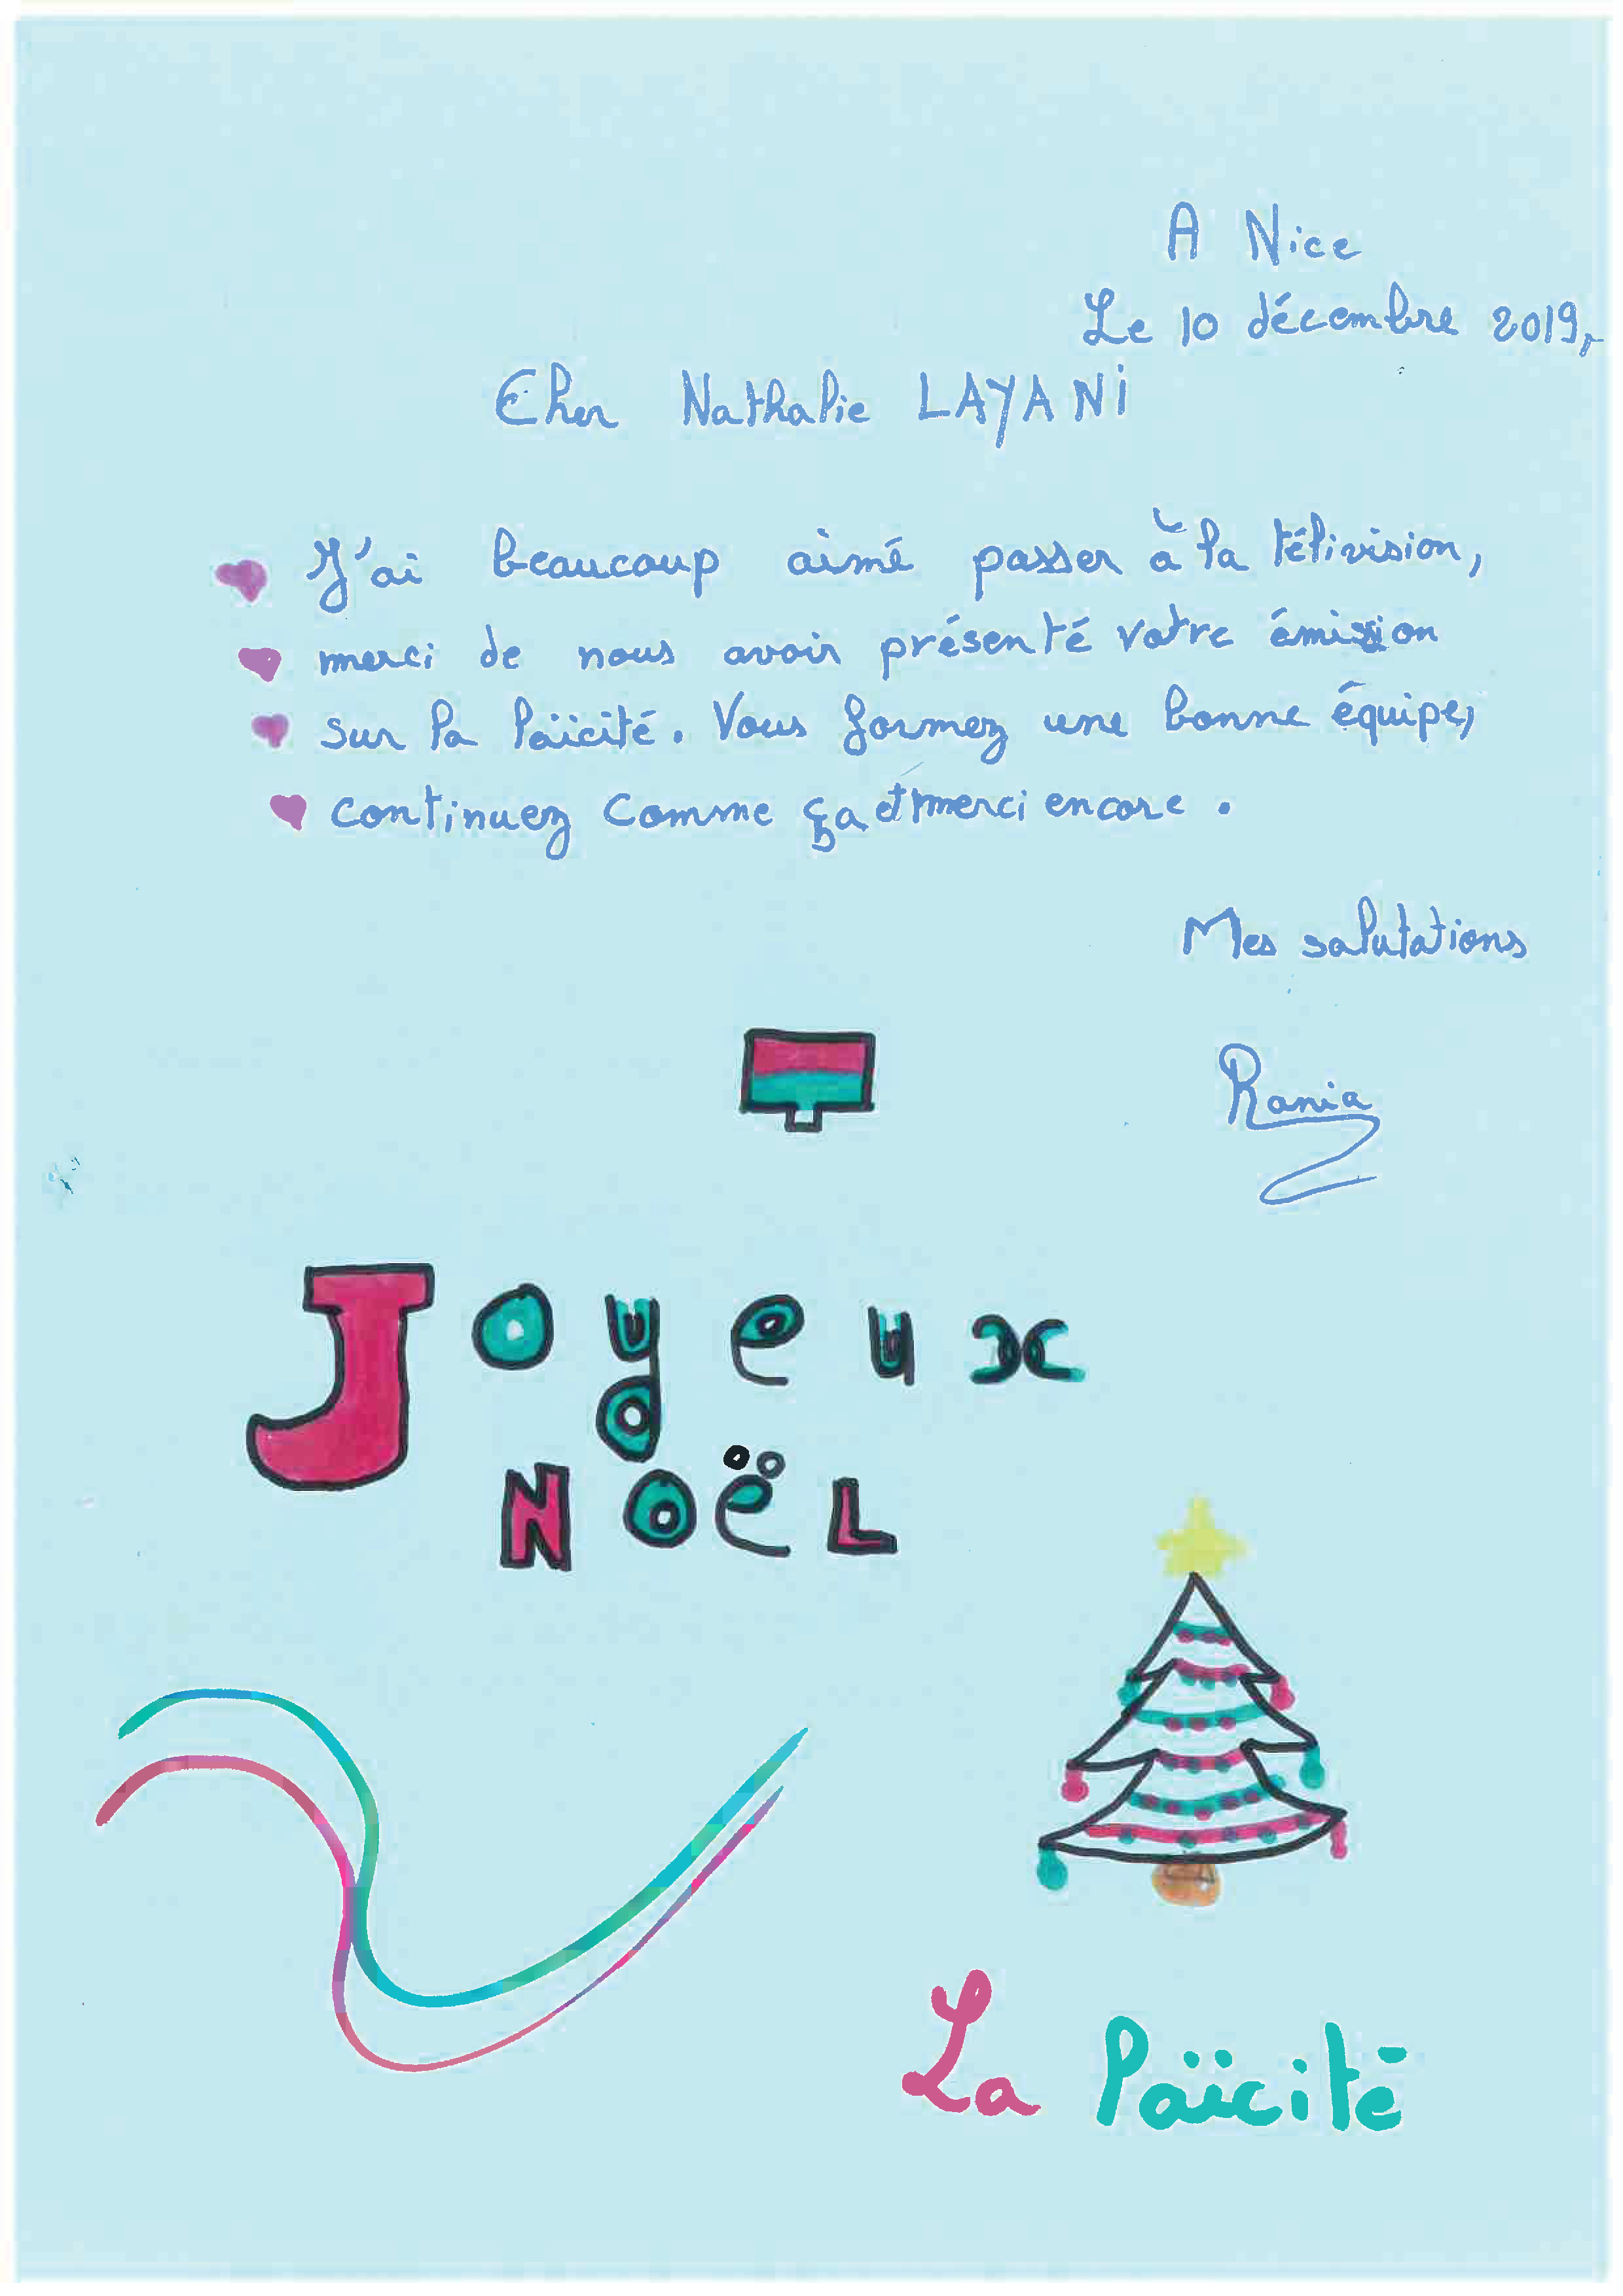 A Nice
Le 10 décembre 2019,
Cher Nathalie LAYANi
J'ai beaucoup aimé passer à la télivision,
merci de nous avoir présenté votre émission
sur la laïcité. Vous formez une bonne équipe,
continuez comme ça et merci encore.
Mes salutations
Rania
Joyeux
NoëL
La laïcité